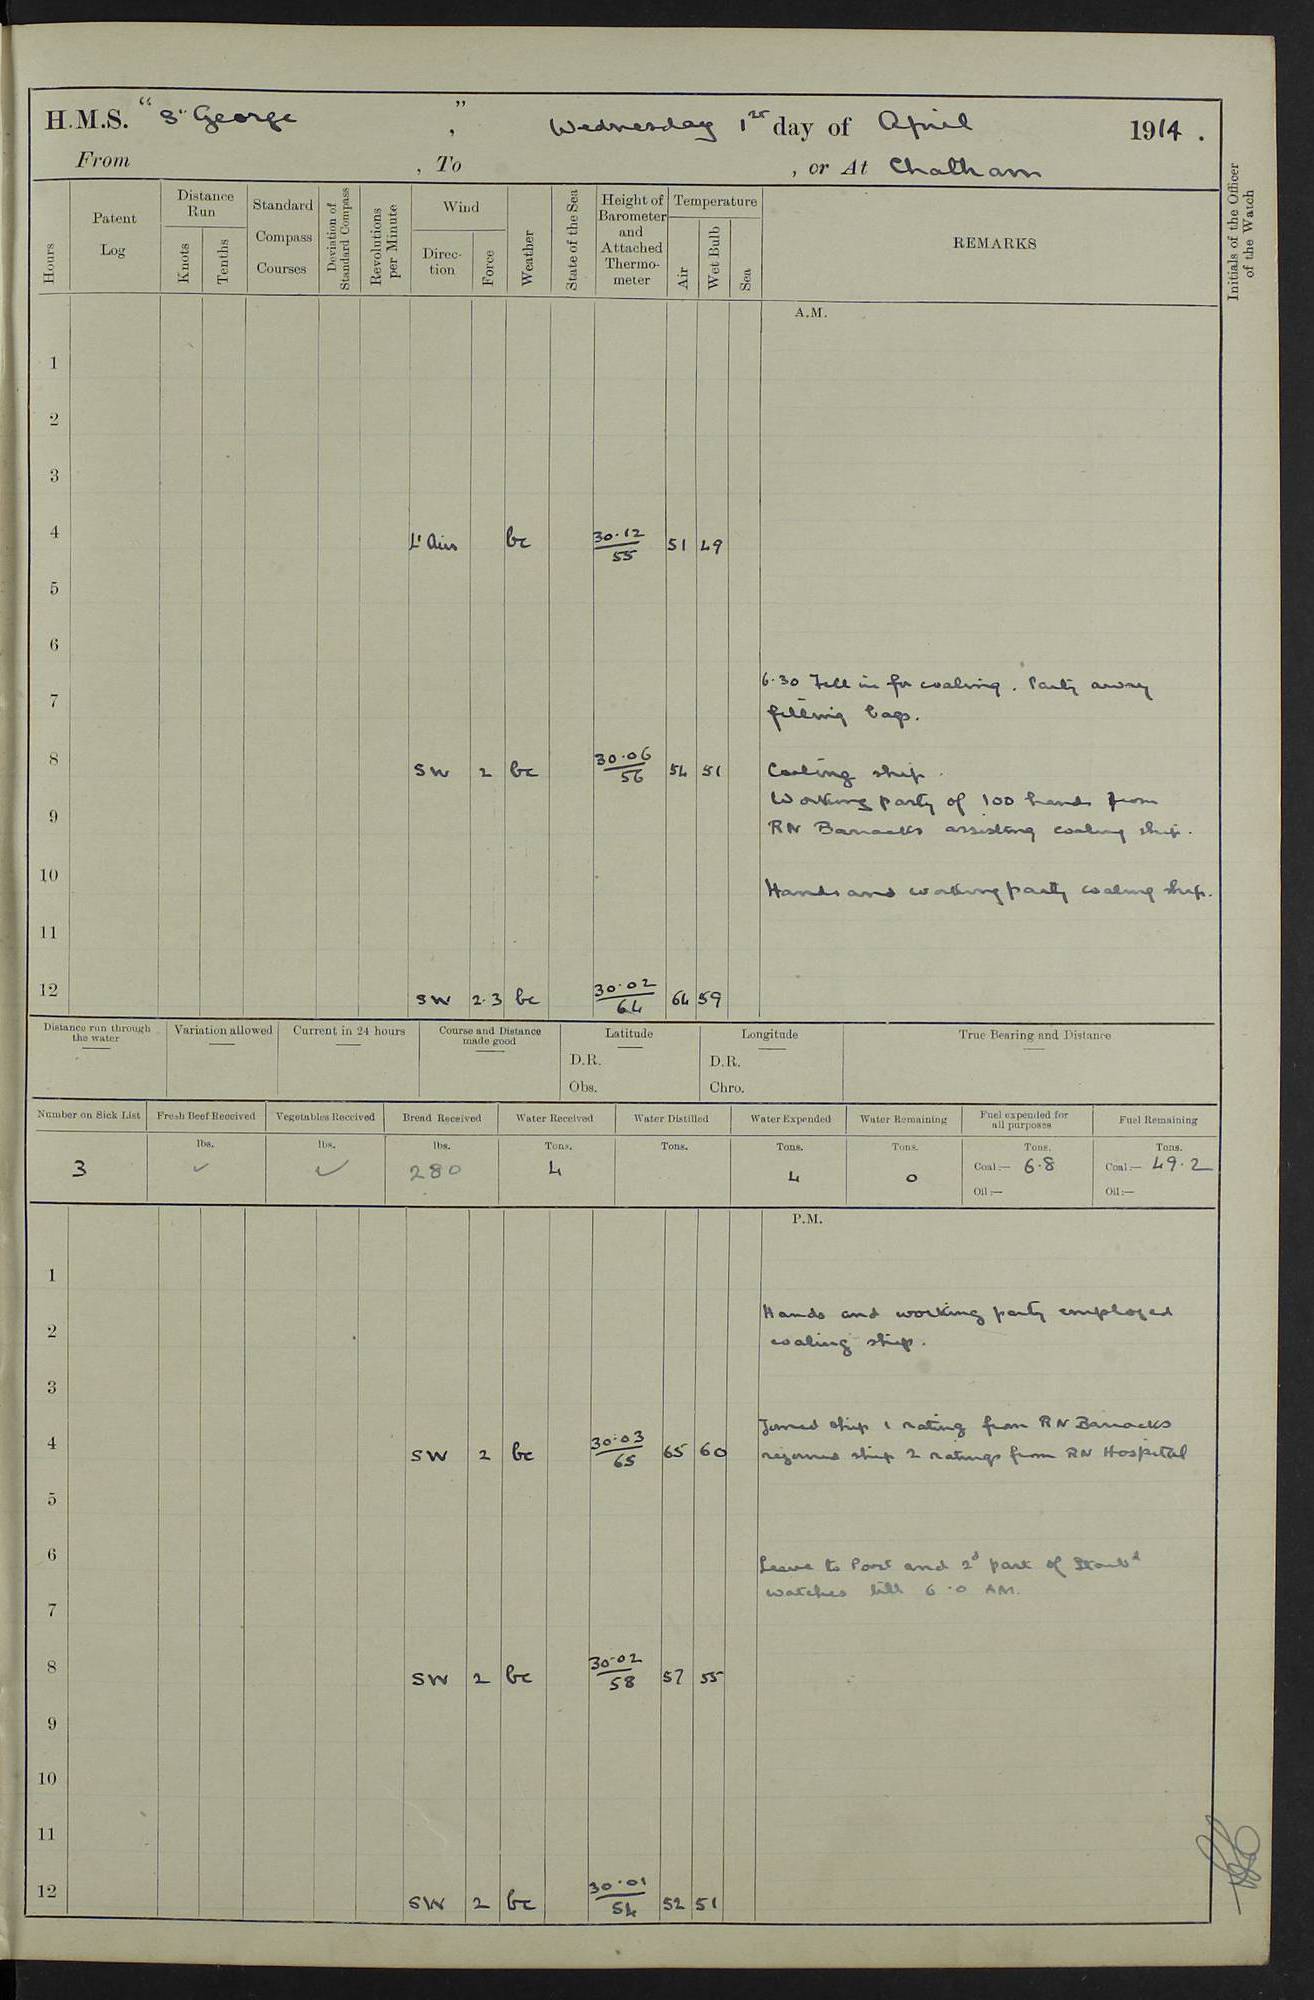 H.M.S. "St George", Wednesday 1st day of April 1914.
From , To , or At Chatham
Hours
Patent Log
Distance Run
Knots
Tenths
Standard Compass Courses
Deviation of Standard Compass
Revolutions per Minute
Wind
Direction
Force
Weather
State of the Sea
Height of Barometer and Attached Thermometer
Temperature
Air
Wet Bulb
Sea
REMARKS
Initials of the Officer of the Watch
A.M.
1
2
3
4 Lt Airs bc 30.12/55 51 49
5
6
6.30 Fell in for coaling. Party away
7 filling bags.
8 SW 2 bc 30.06/56 54 51 Coaling ship.
Working party of 100 hands from
9 RN Barracks assisting coaling ship.
10 Hands and working party coaling ship.
11
12 SW 2.3 bc 30.02/64 64 59
Distance run through the water
Variation allowed
Current in 24 hours
Course and Distance made good
Latitude
D.R.
Obs.
Longitude
D.R.
Chro.
True Bearing and Distance
Number on Sick List Fresh Beef Received Vegetables Received Bread Received Water Received Water Distilled Water Expended Water Remaining Fuel expended for all purposes Fuel Remaining
lbs. lbs. lbs. Tons. Tons. Tons. Tons. Tons. Tons.
3 ✓ ✓ 280 4 4 0 Coal:— 6.8 Coal:— 49.2
Oil:— Oil:—
P.M.
1
Hands and working party employed
2 coaling ship.
3
Joined ship 1 rating from RN Barracks
4 SW 2 bc 30.03/65 65 60 rejoined ship 2 ratings from RN Hospital
5
6 Leave to Port and 2d part of Starbd
watches till 6.0 AM.
7
8 SW 2 bc 30.02/58 57 55
9
10
11
12 SW 2 bc 30.01/54 52 51